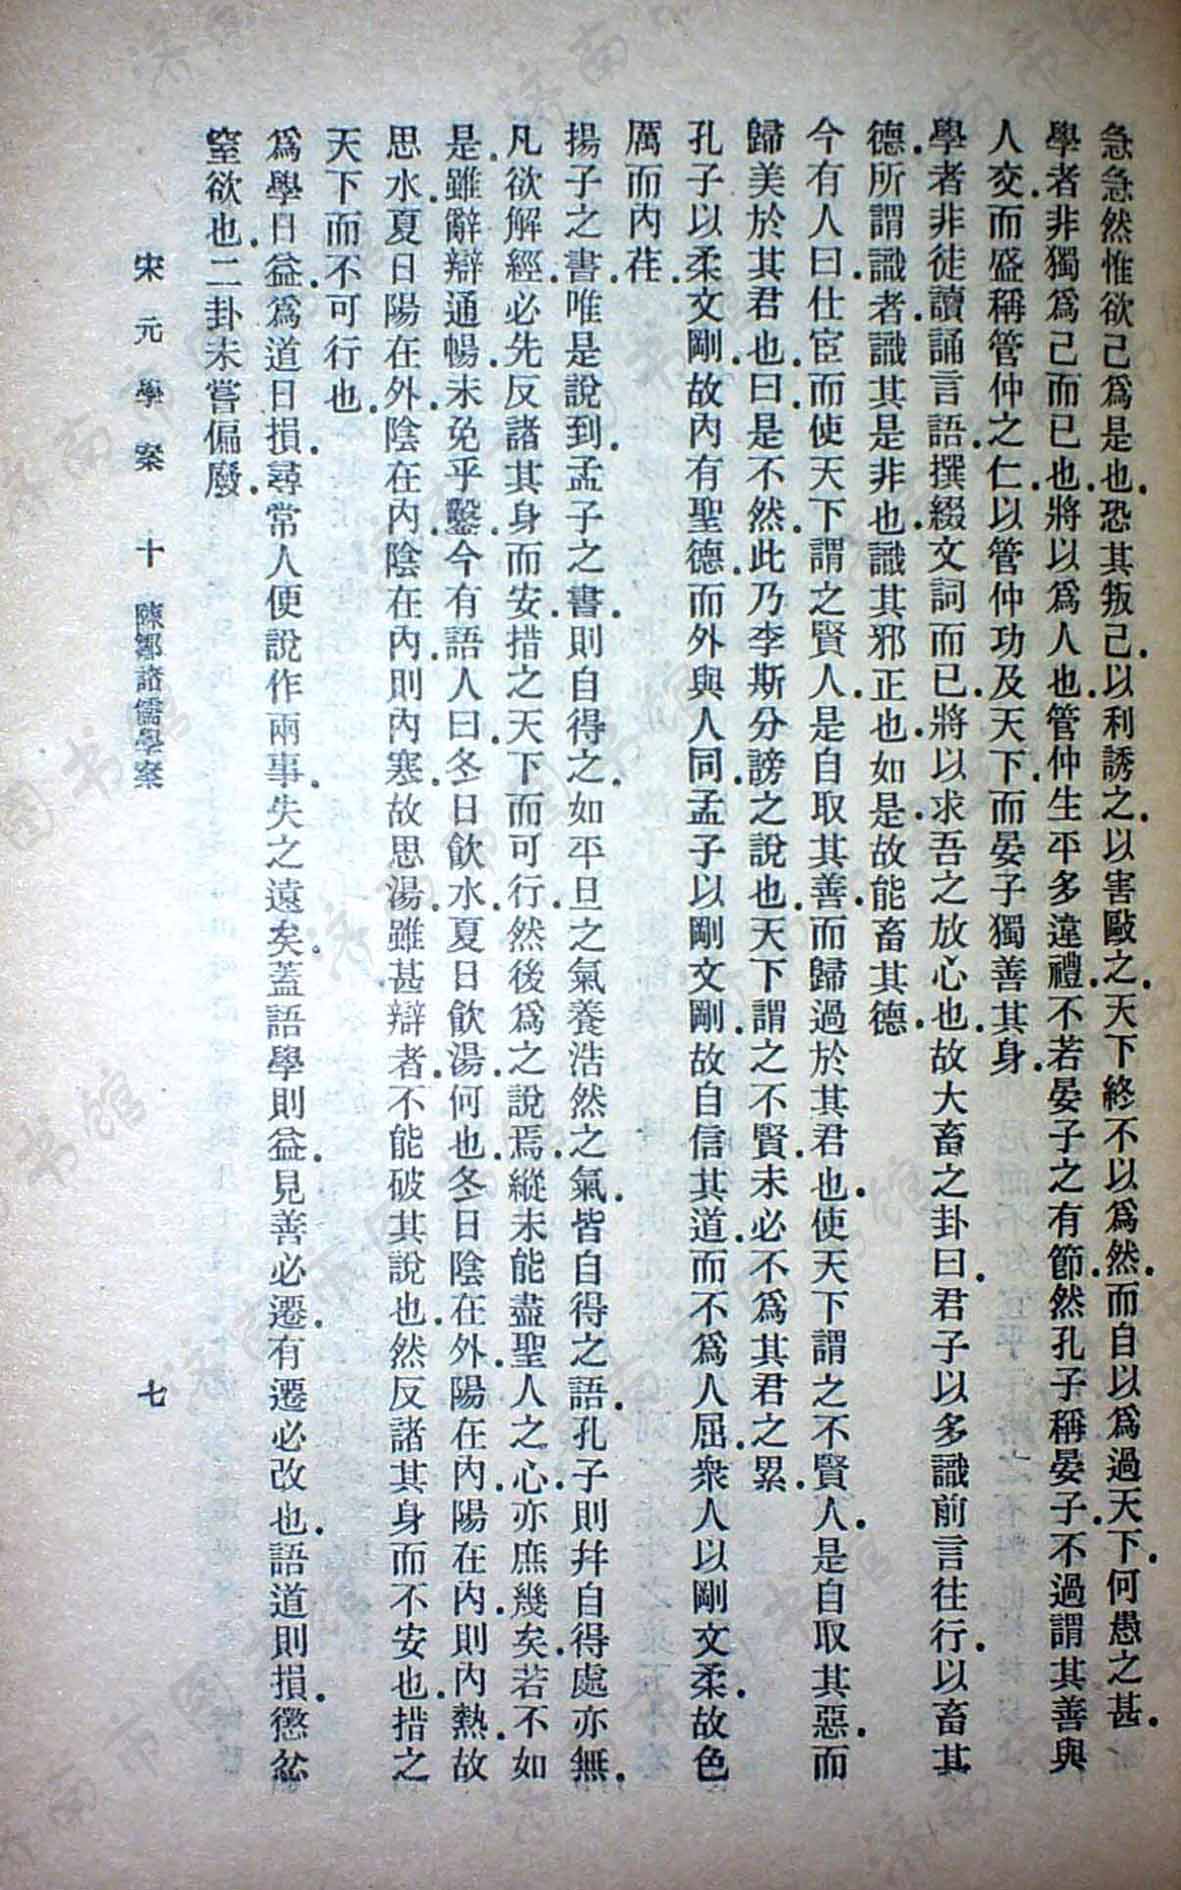 急急然惟欲己爲是也.恐其叛己.以利誘之.以害毆之.天下終不以爲然.而自以爲過天下.何愚之甚.
學者非獨爲己而已也.將以爲人也.管仲生平多違禮.不若晏子之有節.然孔子稱晏子.不過謂其善與
人交.而盛稱管仲之仁.以管仲功及天下.而晏子獨善其身.
學者非徒讀誦言語.撰綴文詞而已.將以求吾之放心也.故大畜之卦曰.君子以多識前言往行.以畜其
德.所謂識者.識其是非也.識其邪正也.如是.故能畜其德.
今有人曰.仕宦而使天下謂之賢人.是自取其善.而歸過於其君也.使天下謂之不賢人.是自取其惡.而
歸美於其君也.曰.是不然.此乃李斯分謗之說也.天下謂之不賢.未必不爲其君之累.
孔子以柔文剛.故內有聖德.而外與人同.孟子以剛文剛.故自信其道.而不爲人屈.衆人以剛文柔.故色
厲而內荏.
揚子之書.唯是說到.孟子之書.則自得之.如平旦之氣.養浩然之氣.皆自得之語.孔子則幷自得處亦無.
凡欲解經.必先反諸其身而安.措之天下而可行.然後爲之說焉.縱未能盡聖人之心.亦庶幾矣.若不如
是.雖辭辯通暢.未免乎鑿.今有語人曰.冬日飲水.夏日飲湯.何也.冬日陰在外.陽在內.陽在內.則內熱.故
思水.夏日陽在外.陰在內.陰在內.則內寒.故思湯.雖甚辯者.不能破其說也.然反諸其身而不安也.措之
天下而不可行也.
爲學日益.爲道日損.尋常人便說作兩事.失之遠矣.蓋語學則益.見善必遷.有遷必改也.語道則損.懲忿
窒欲也.二卦未嘗偏廢.
宋元學案 十 陳鄒諸儒學案 七
济南市图书馆